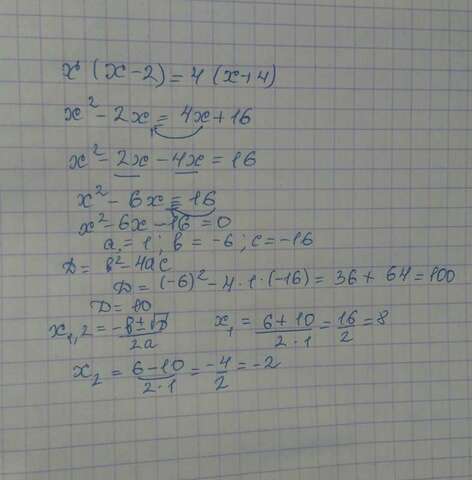 x (x-2) = 4 (x+4)
x² - 2x = 4x + 16
x² - 2x - 4x = 16
x² - 6x = 16
x² - 6x - 16 = 0
a = 1; b = -6; c = -16
D = b² - 4ac
D = (-6)² - 4·1·(-16) = 36 + 64 = 100
D = 10
x₁,₂ = -b±√D/2a x₁ = 6+10/2·1 = 16/2 = 8
x₂ = 6-10/2·1 = -4/2 = -2